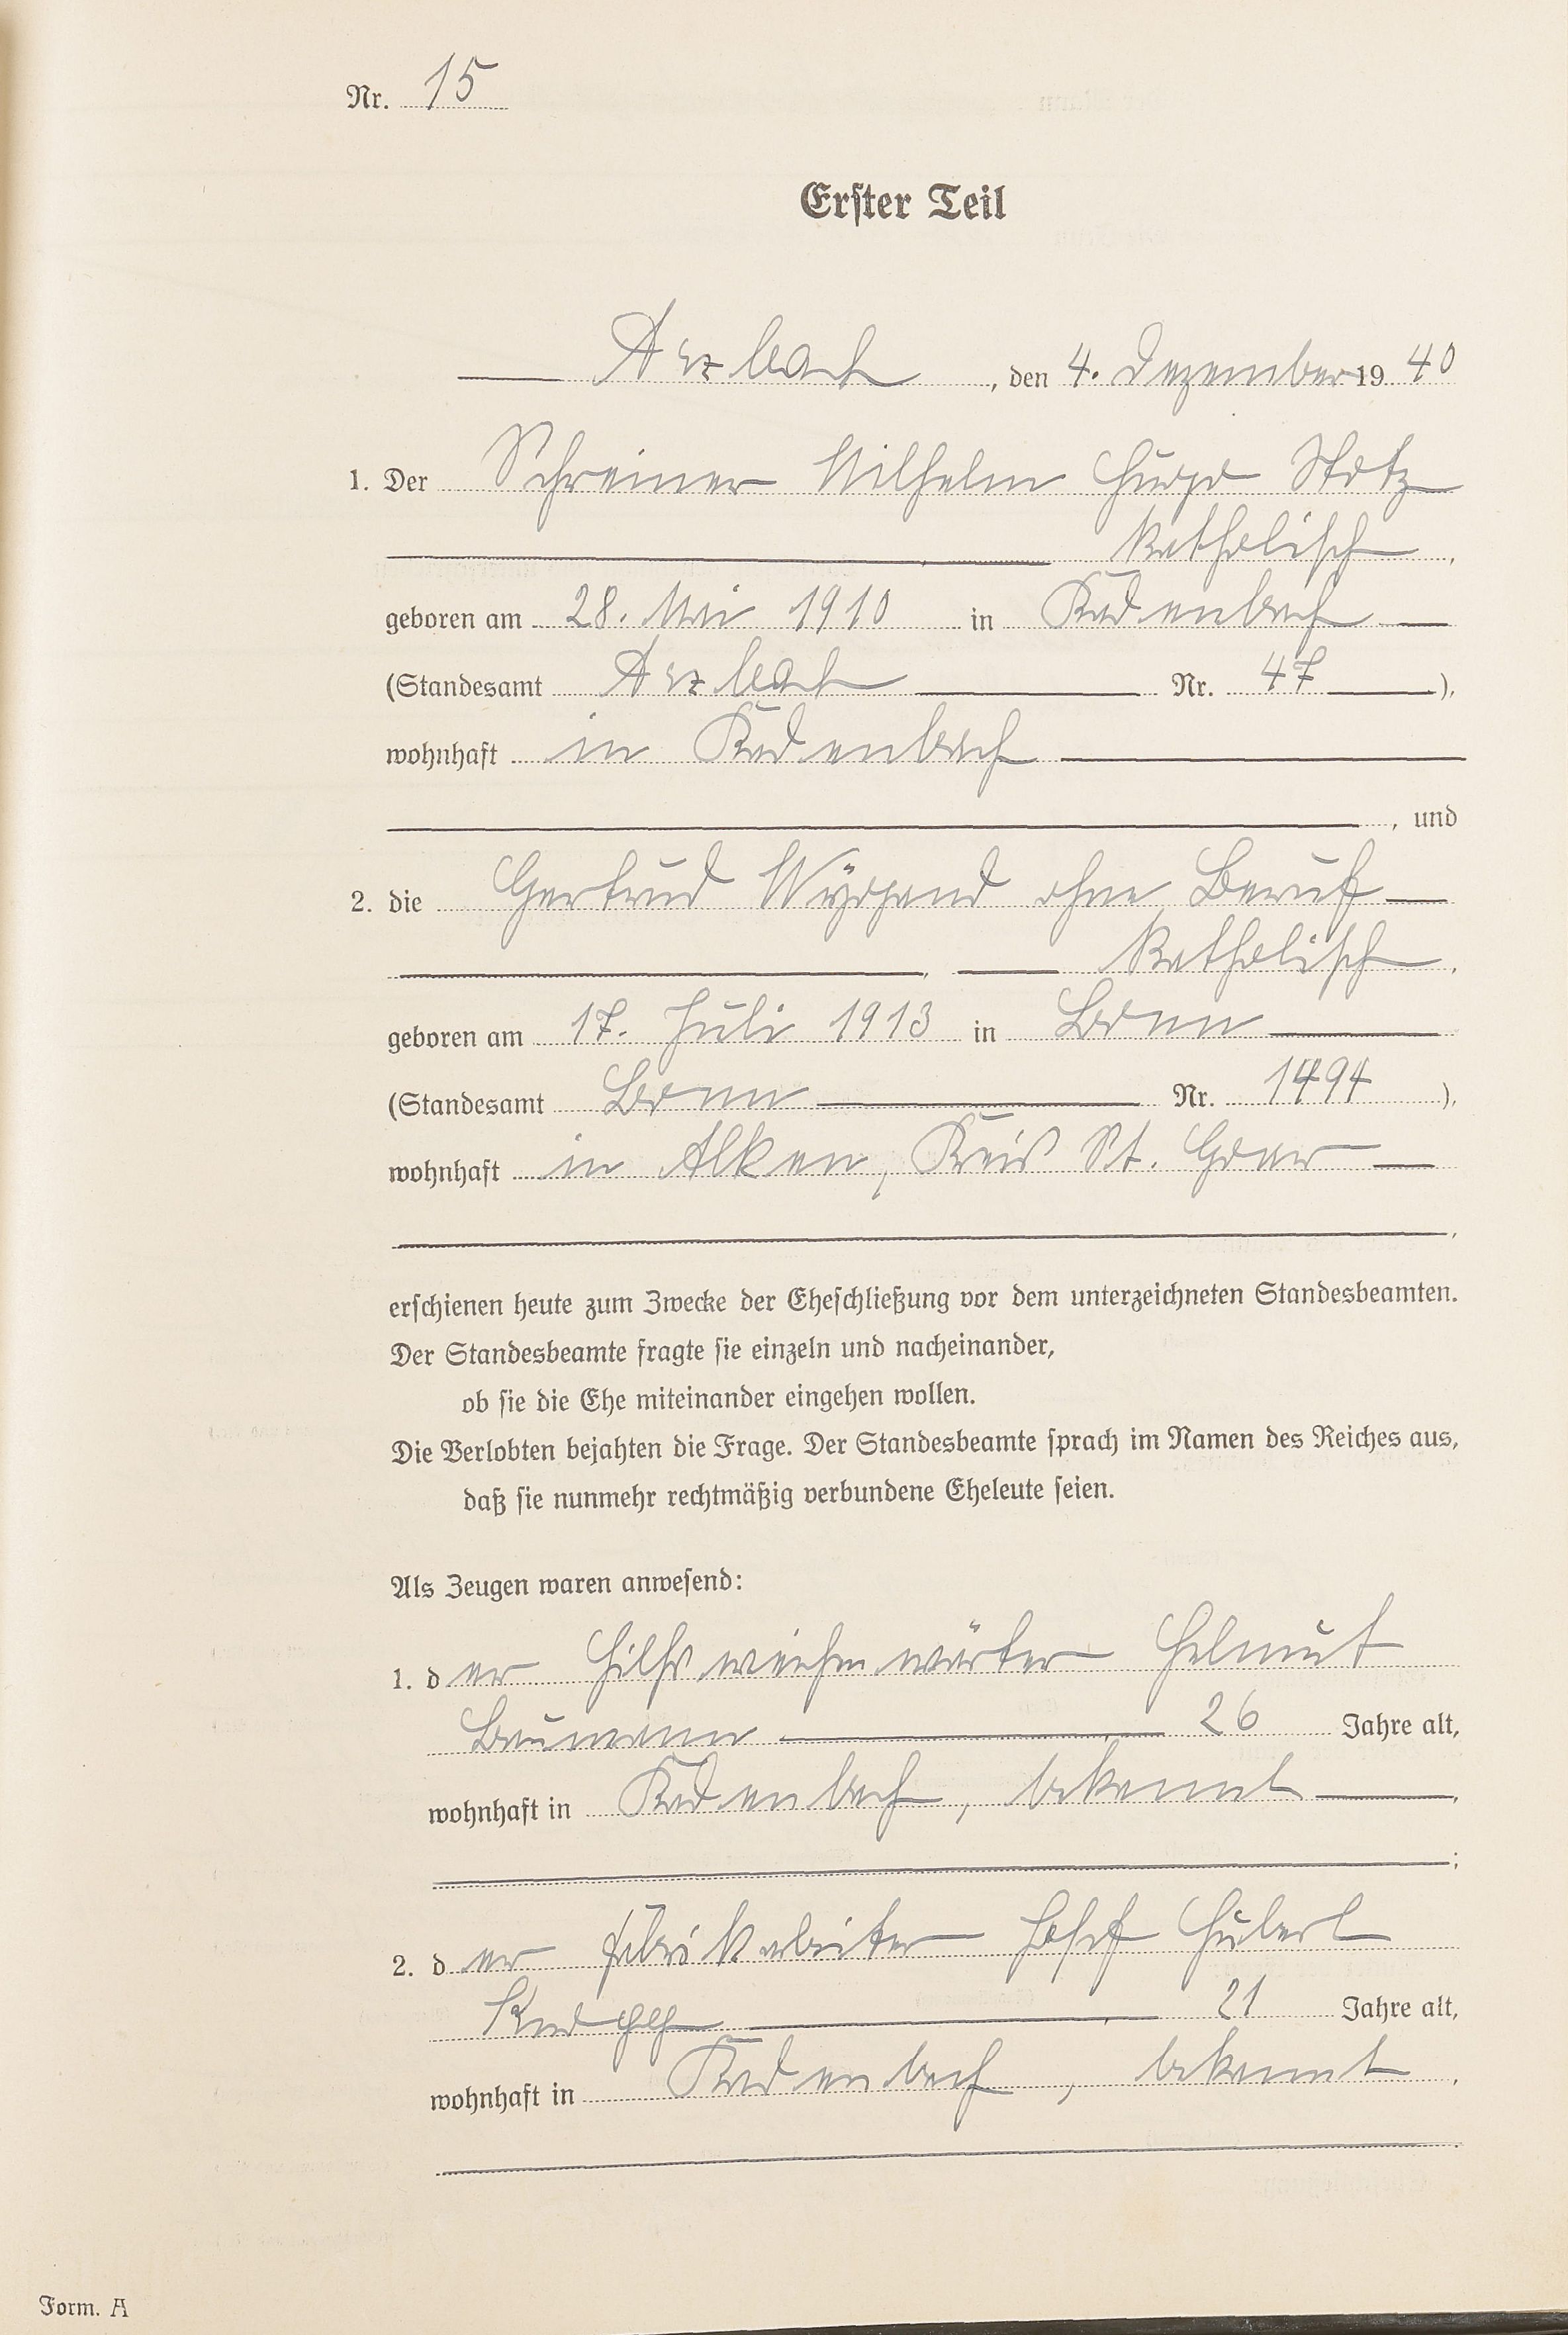 Nr. 15
Erster Teil
Arzbach, den 4. Dezember 1940
1. Der Schreiner Wilhelm Hugo Stotz
katholisch,
geboren am 28. Mai 1910 in Kadenbach
(Standesamt Arzbach Nr. 47),
wohnhaft in Kadenbach
, und
2. die Gertrud Wygand ohne Beruf
, katholisch,
geboren am 17. Juli 1913 in Bonn
(Standesamt Bonn Nr. 1494),
wohnhaft in Alken, Kreis St. Goar
,
erschienen heute zum Zwecke der Eheschließung vor dem unterzeichneten Standesbeamten.
Der Standesbeamte fragte sie einzeln und nacheinander,
ob sie die Ehe miteinander eingehen wollen.
Die Verlobten bejahten die Frage. Der Standesbeamte sprach im Namen des Reiches aus,
daß sie nunmehr rechtmäßig verbundene Eheleute seien.
Als Zeugen waren anwesend:
1. der Hilfsweichenwärter Helmut
Baumann 26 Jahre alt,
wohnhaft in Kadenbach, bekannt,
;
2. der Fabrikarbeiter Josef Hubert
21 Jahre alt,
wohnhaft in Kadenbach, bekannt,
.
Form. A